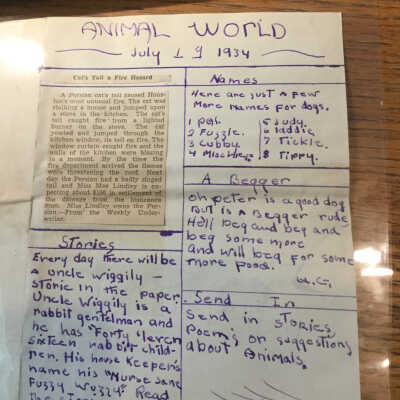 ANIMAL WORLD
July 19 1934
Cat's Tail a Fire Hazard
A Persian cat's tail caused Hous-
ton's most unusual fire. The cat was
stalking a mouse and jumped upon
a stove in the kitchen. The cat's
tail caught fire from a lighted
burner on the stove. The cat
yowled and jumped through the
kitchen window, its tail on fire. The
window curtain caught fire and the
walls of the kitchen were blazing
in a moment. By the time the
fire department arrived the flames
were threatening the roof. Next
day the Persian had a badly singed
tail and Miss Mae Lindley is ex-
pecting about $100 in settlement of
the damage from the insurance
man. Miss Lindley owns the Per-
sian.—From the Weekly Under-
writer.
Stories
Every day there will be
a uncle wiggily –
storie in the paper.
Uncle Wiggily is a
rabbit gentelman and
he has "Forty leven
sixteen rabbit child-
ren. His house keepers
name his "Nurse Jane
Fuzzy Wuzzy." Read
Names
Here are just a few
more names for dogs.
1 pal. 5 Judy.
2 Fuzzle. 6 laddie
3 cubby 7 Tickle.
4 8 Tippy.
A Begger
oh peter is a good dog
But is a Begger rude
He'll beg and beg and
beg some more
and will beg for some
more food.
Send In
Send in stories
Poem's or suggestions
about Animals.